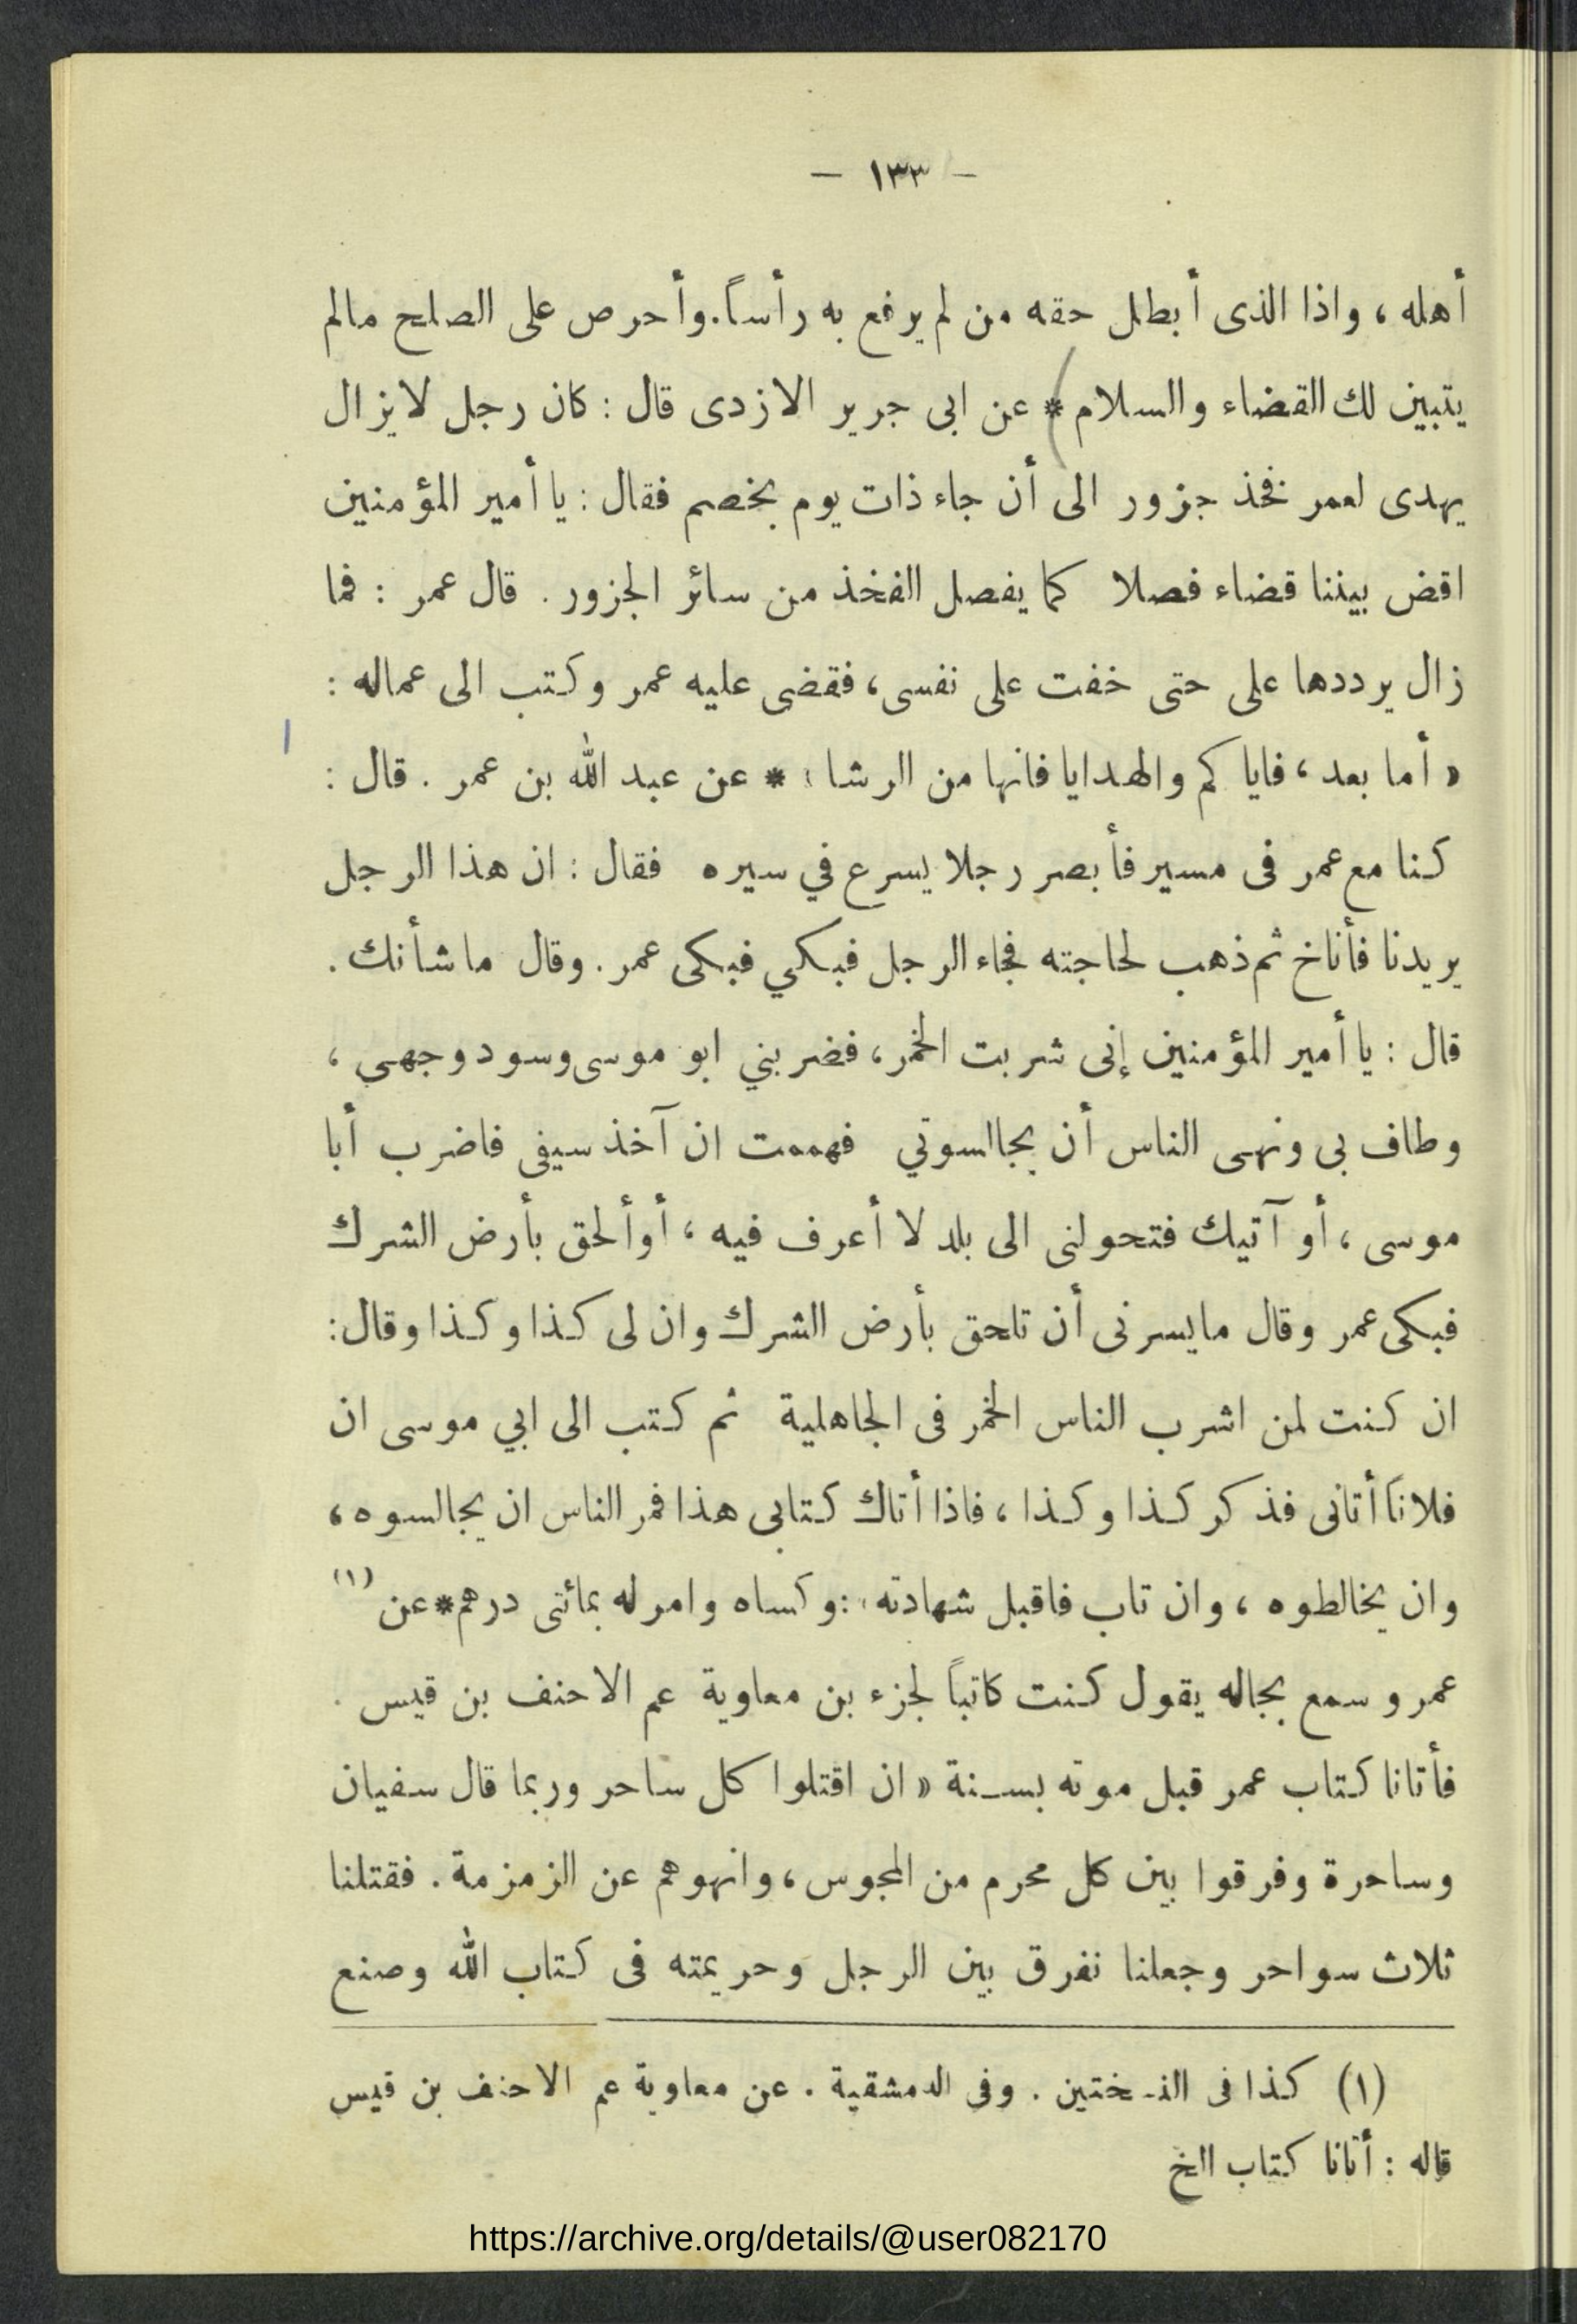 — ١٣٣ —
أهله ، واذا الذى أبطل حقه من لم يرفع به رأساً. وأحرص على الصلح مالم
يتبين لك القضاء والسلام * عن ابى جرير الازدى قال : كان رجل لايزال
يهدى لعمر فخذ جزور الى أن جاء ذات يوم بخصم فقال : يا أمير المؤمنين
اقض بيننا قضاء فصلا كما يفصل الفخذ من سائر الجزور . قال عمر : فما
زال يرددها على حتى خفت على نفسى ، فقضى عليه عمر وكتب الى عماله :
« أما بعد ، فايا كم والهدايا فانها من الرشا » * عن عبد الله بن عمر . قال :
كنا مع عمر فى مسير فأبصر رجلا يسرع في سيره فقال : ان هذا الرجل
يريدنا فأناخ ثم ذهب لحاجته فجاء الرجل فبكي فبكى عمر . وقال ما شأنك .
قال : يا أمير المؤمنين إنى شربت الخمر ، فضربني ابو موسى وسود وجهى ،
وطاف بى ونهى الناس أن يجالسوني فهممت ان آخذ سيفى فاضرب أبا
موسى ، أو آتيك فتحولنى الى بلد لا أعرف فيه ، أو ألحق بأرض الشرك
فبكى عمر وقال مايسرنى أن تلحق بأرض الشرك وان لى كذا وكذا وقال :
ان كنت لمن اشرب الناس الخمر فى الجاهلية ثم كتب الى ابي موسى ان
فلاناً أتانى فذكر كذا وكذا ، فاذا أتاك كتابى هذا فمر الناس ان يجالسوه ،
وان يخالطوه ، وان تاب فاقبل شهادته : وكساه وامر له بمائتى درهم * عن (١)
عمر و سمع بجاله يقول كنت كاتباً لجزء بن معاوية عم الاحنف بن قيس .
فأتانا كتاب عمر قبل موته بسنة « ان اقتلوا كل ساحر وربما قال سفيان
وساحرة وفرقوا بين كل محرم من المجوس ، وانهوهم عن الزمزمة . فقتلنا
ثلاث سواحر وجعلنا نفرق بين الرجل وحريمته فى كتاب الله وصنع
(١) كذا فى النسختين . وفى الدمشقية . عن معاوية عم الاحنف بن قيس
قاله : أتانا كتاب الخ
https://archive.org/details/@user082170